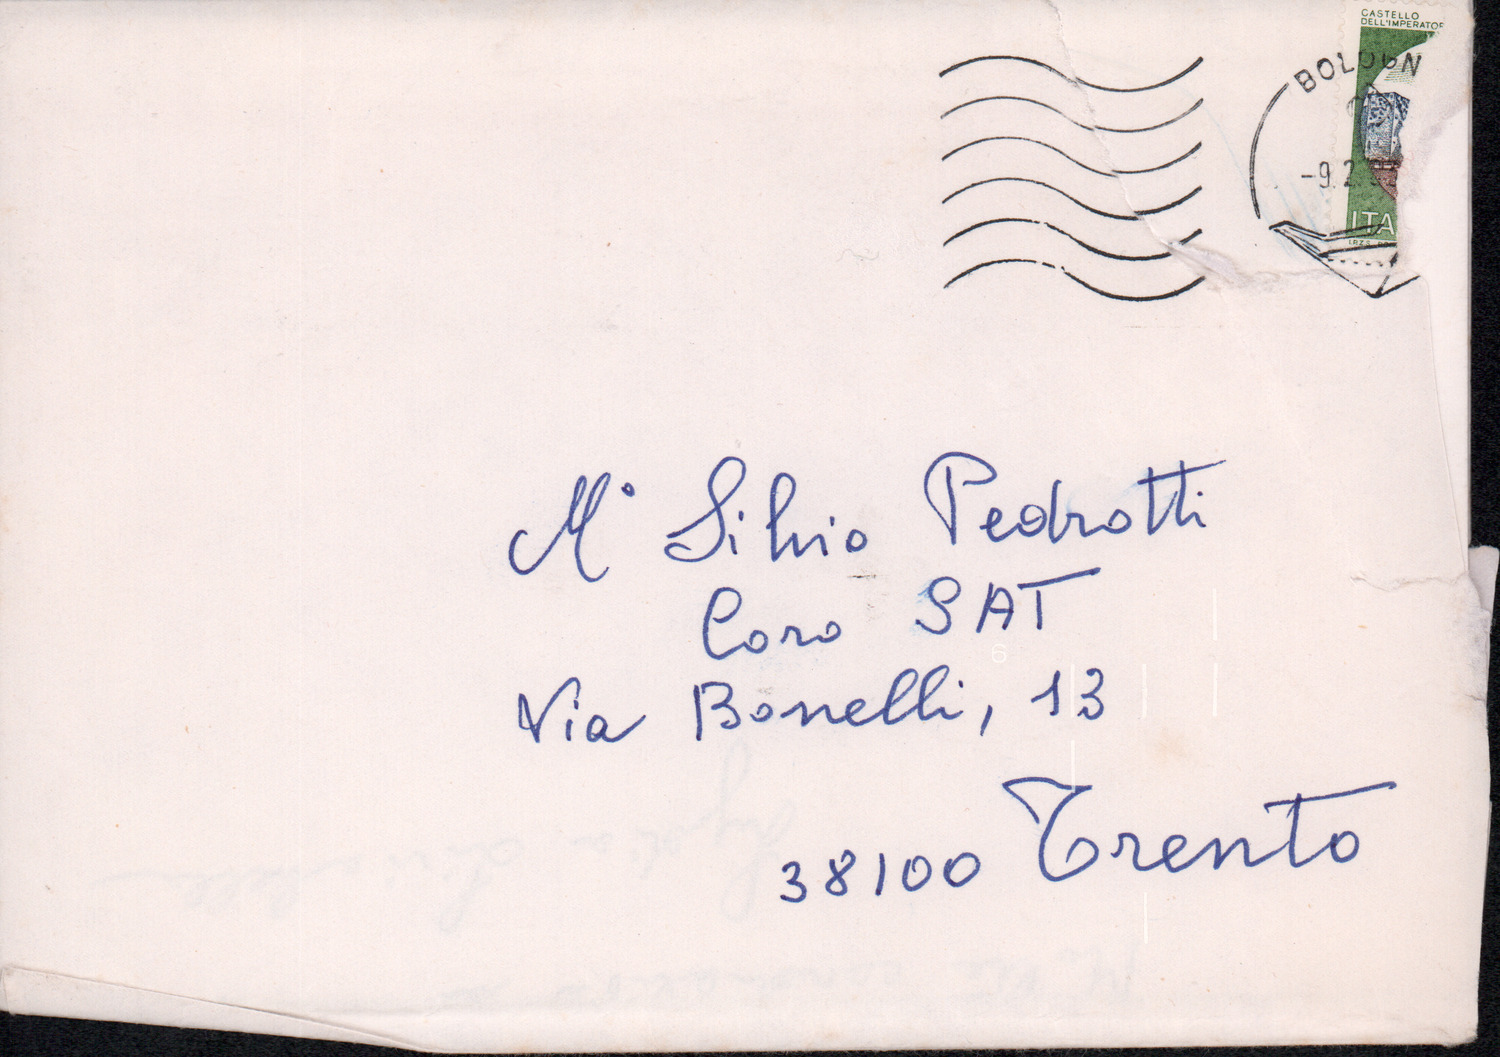 CASTELLO
DELL'IMPERATOR
BOLOGN
-9.2
ITA
M° Silvio Pedrotti
Coro SAT
Via Bonelli, 13
38100 Trento
6